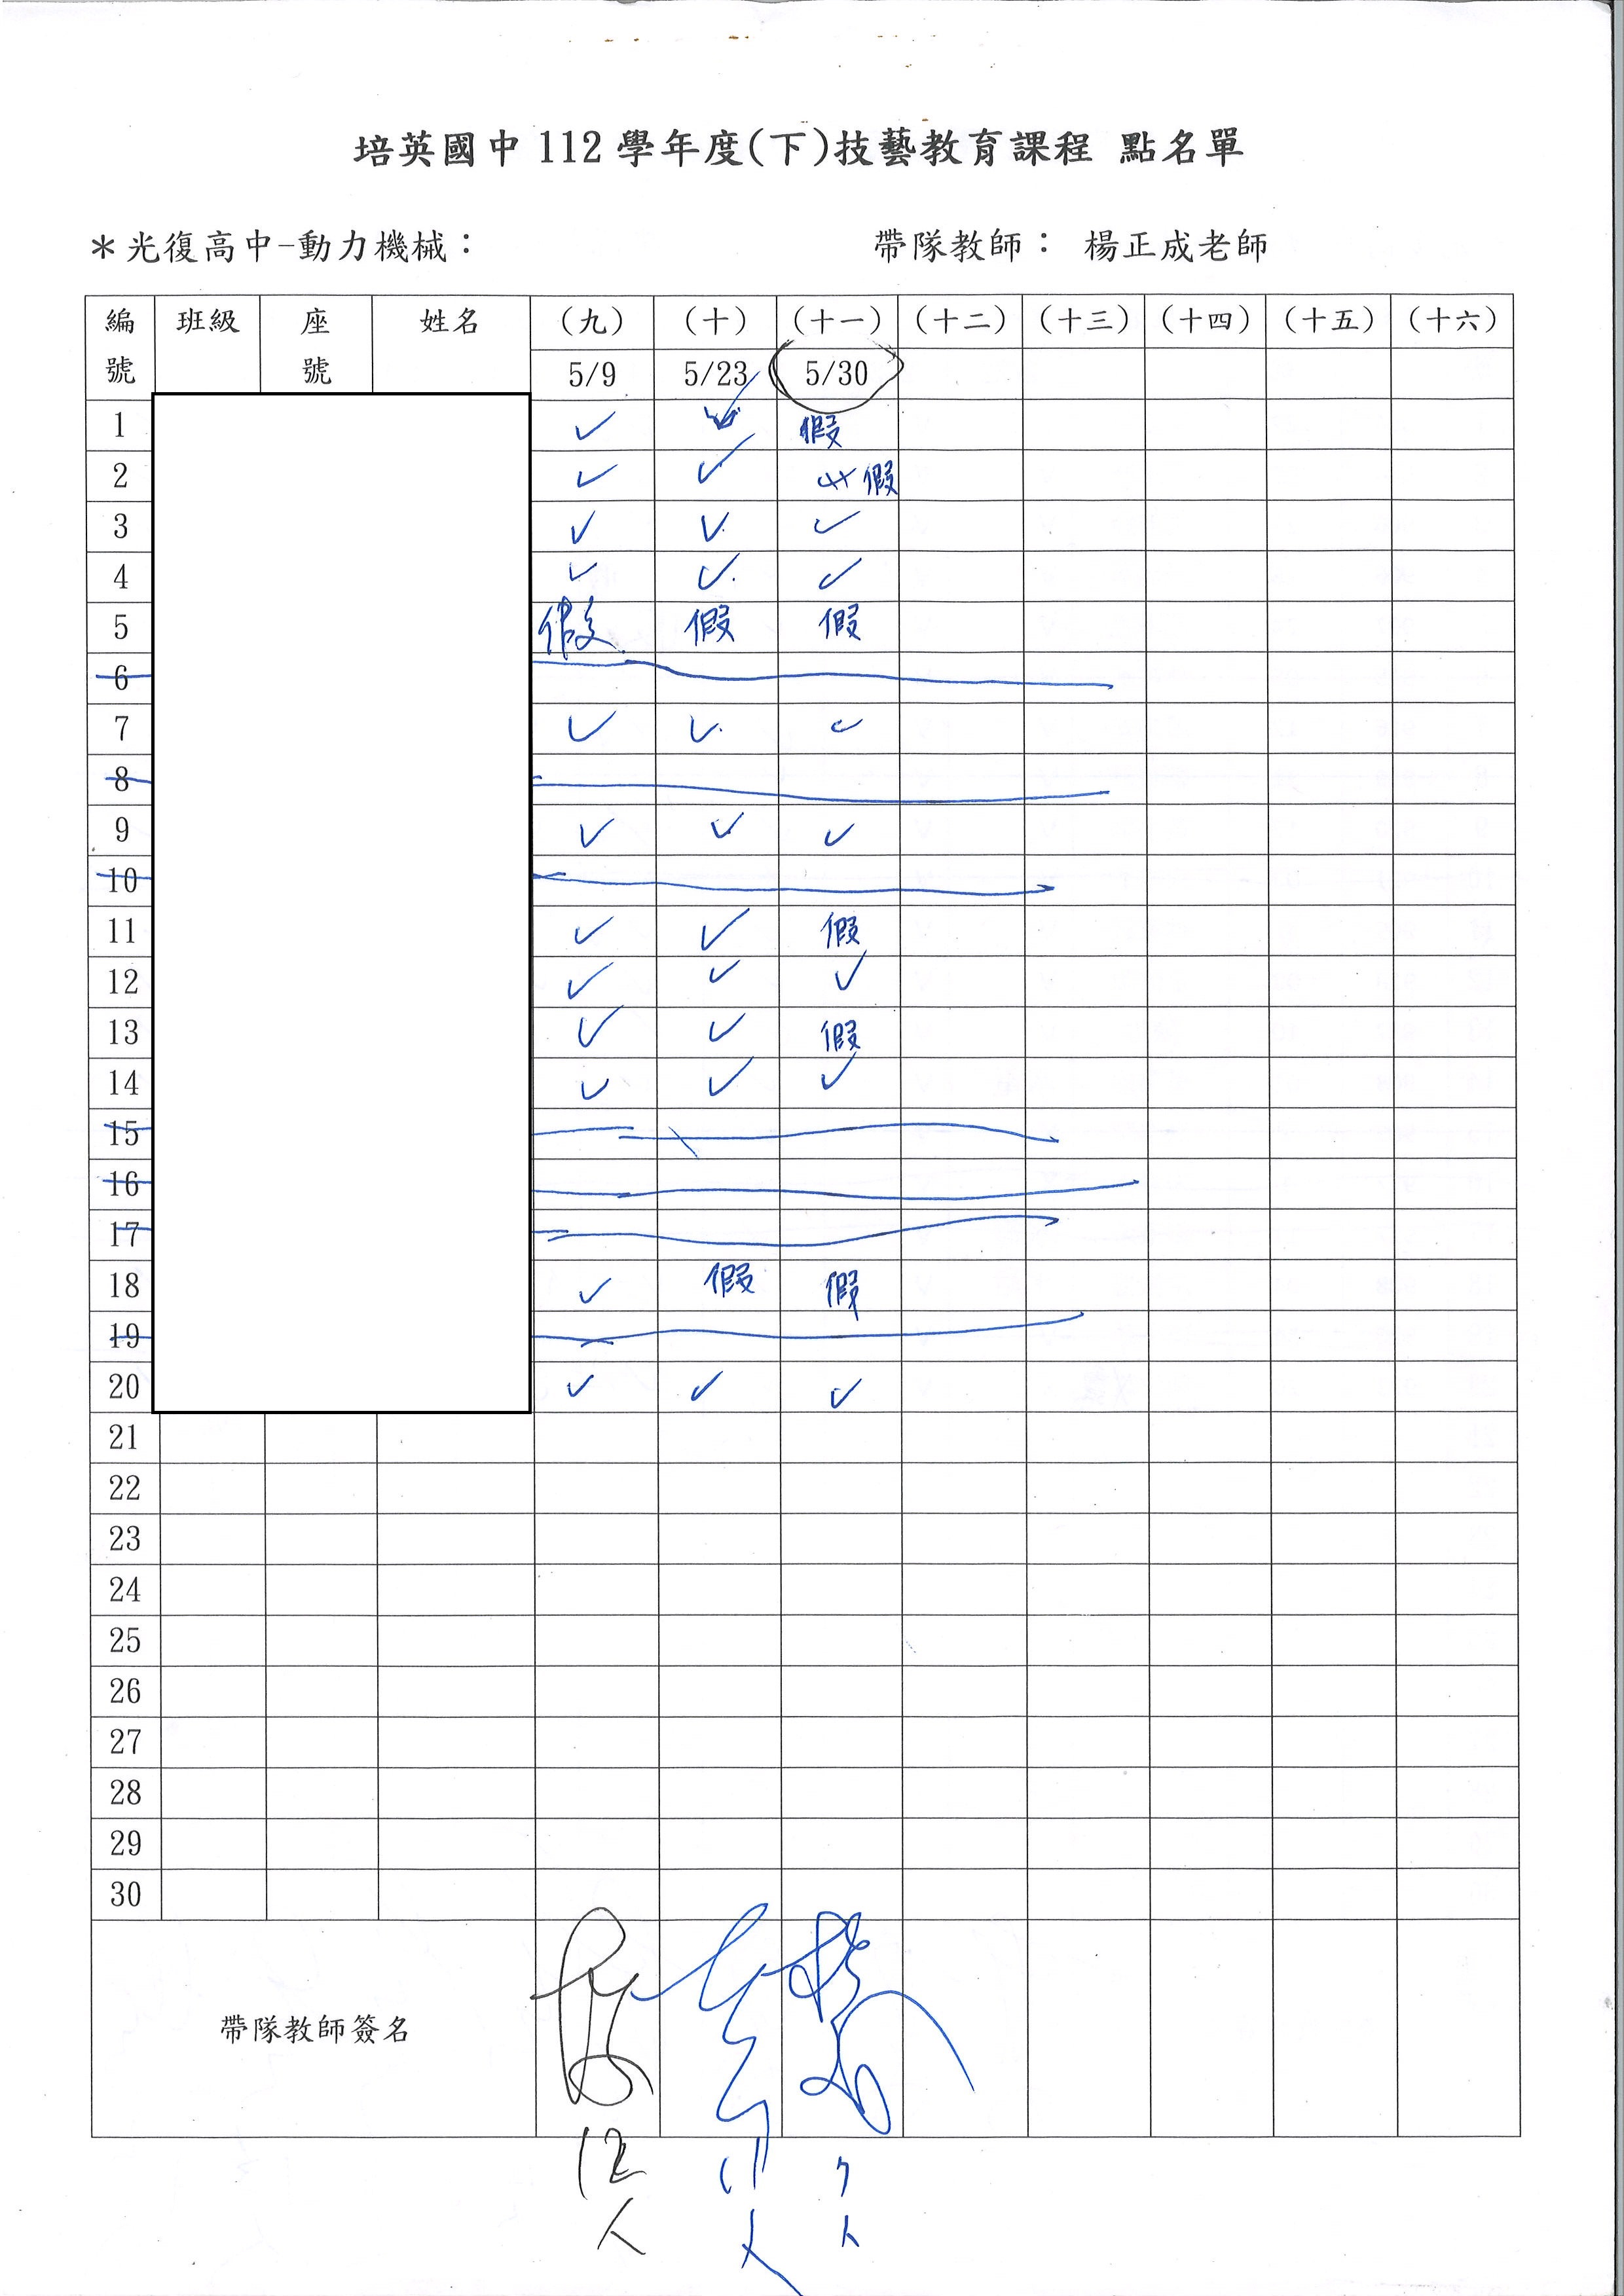 培英國中 112 學年度(下)技藝教育課程 點名單
＊光復高中-動力機械： 帶隊教師： 楊正成老師
編號 班級 座號 姓名 (九) (十) (十一) (十二) (十三) (十四) (十五) (十六)
5/9 5/23 5/30
1 ✓ ✓ 假
2 ✓ ✓ 假
3 ✓ ✓ ✓
4 ✓ ✓ ✓
5 假 假 假
6
7 ✓ ✓ ✓
8
9 ✓ ✓ ✓
10
11 ✓ ✓ 假
12 ✓ ✓ ✓
13 ✓ ✓ 假
14 ✓ ✓ ✓
15
16
17
18 ✓ 假 假
19
20 ✓ ✓ ✓
21
22
23
24
25
26
27
28
29
30
帶隊教師簽名
12 11 7
人 人 人